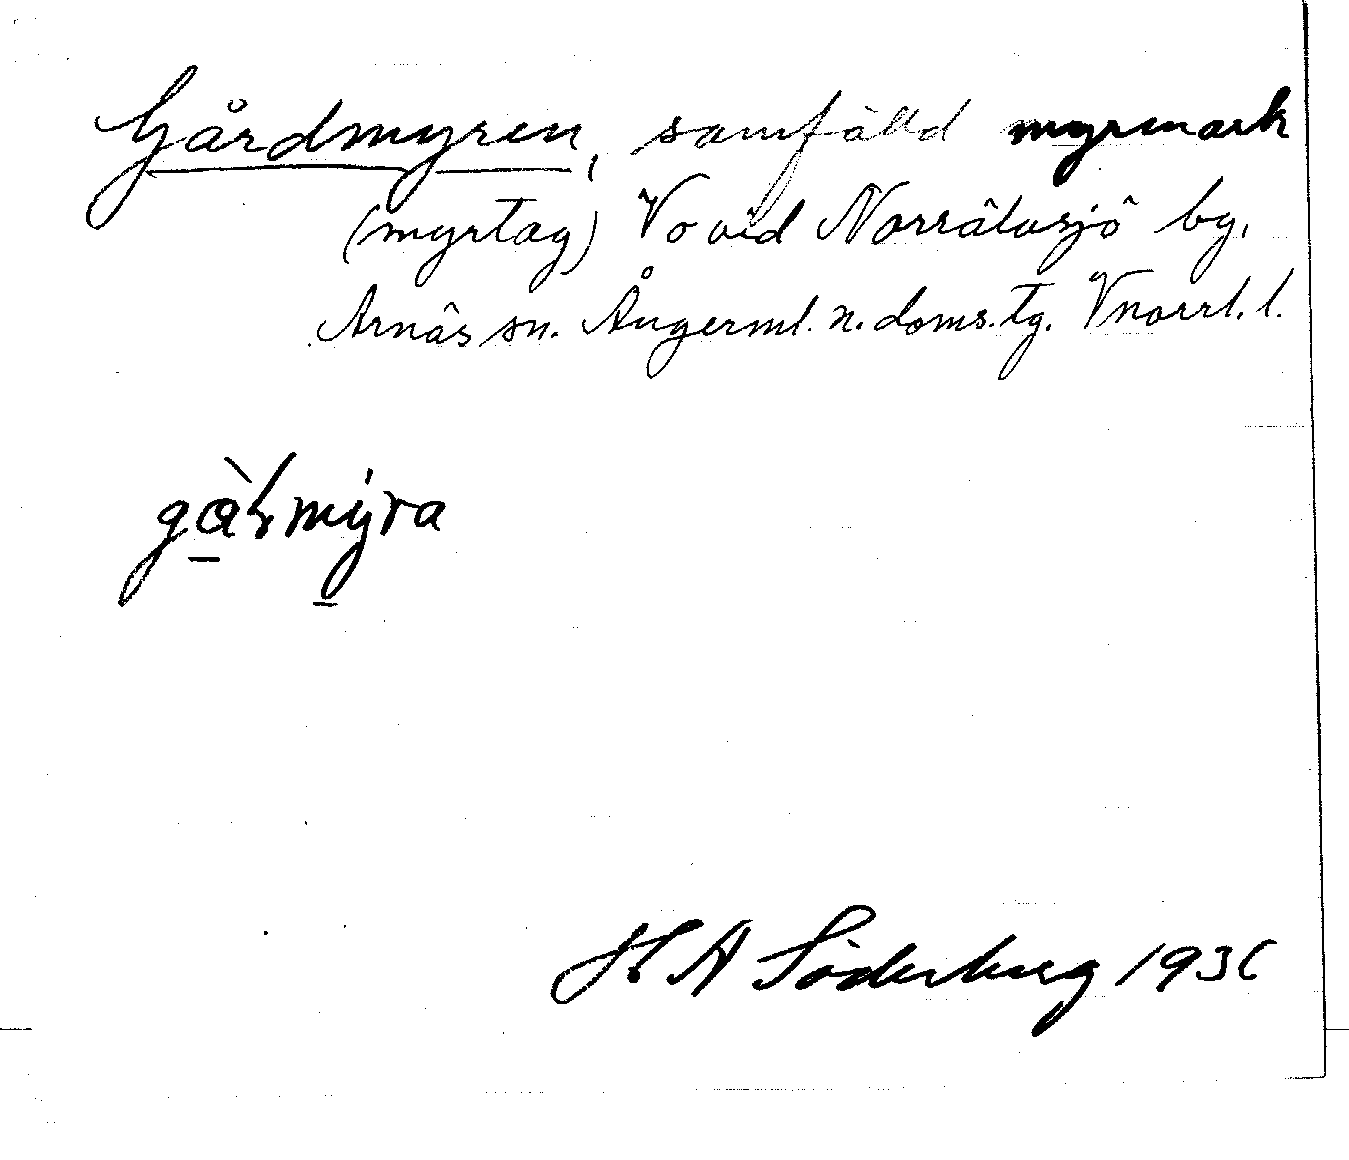 Gårdmyren, samfälld myrmark
(myrtag) V o vid Norrälvsjö by,
Arnäs sn. Ångerml. n. doms. tg. Vnorrl. l.
H A Söderberg 1936